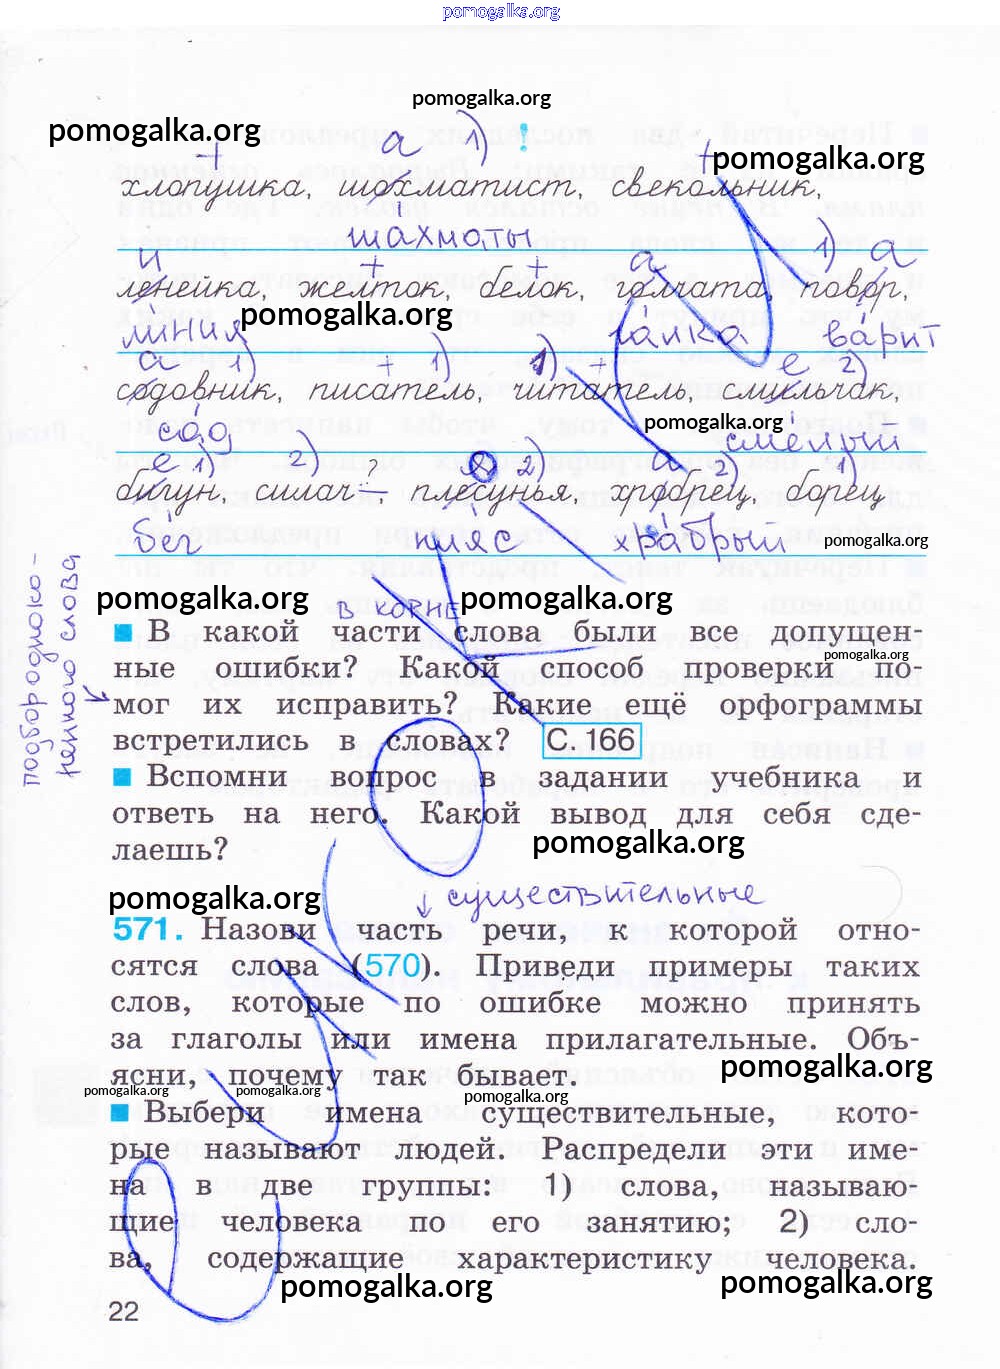 pomogalka.org
pomogalka.org
pomogalka.org
а 1) !
+ +
pomogalka.org
хлопушка, шохматист, свекольник,
шахматы 1) а
и + + а
ленейка, желток, белок,голчата, повор,
pomogalka.org
линия галка варит
а 1) + 1) 1) + е 2)
содовник, писатель, читатель, смильчак,
pomogalka.org
сад смелый
е 1) 2) ? я 2) 2) 1)
бигун, силач, плесунья, хробрец, борец
бег пляс храбрый
pomogalka.org
pomogalka.org
pomogalka.org
в корне
подбор одноко-
ренного слова
В какой части слова были все допущен-
pomogalka.org
ные ошибки? Какой способ проверки по-
мог их исправить? Какие ещё орфограммы
встретились в словах? С. 166
Вспомни вопрос в задании учебника и
ответь на него. Какой вывод для себя сде-
лаешь?
pomogalka.org
pomogalka.org
существительные
571. Назови часть речи, к которой отно-
сятся слова (570). Приведи примеры таких
слов, которые по ошибке можно принять
за глаголы или имена прилагательные. Объ-
pomogalka.org
ясни, почему так бывает.
pomogalka.org
pomogalka.org
pomogalka.org
Выбери имена существительные, кото-
рые называют людей. Распредели эти име-
на в две группы: 1) слова, называю-
щие человека по его занятию; 2) сло-
ва, содержащие характеристику человека.
pomogalka.org
pomogalka.org
22